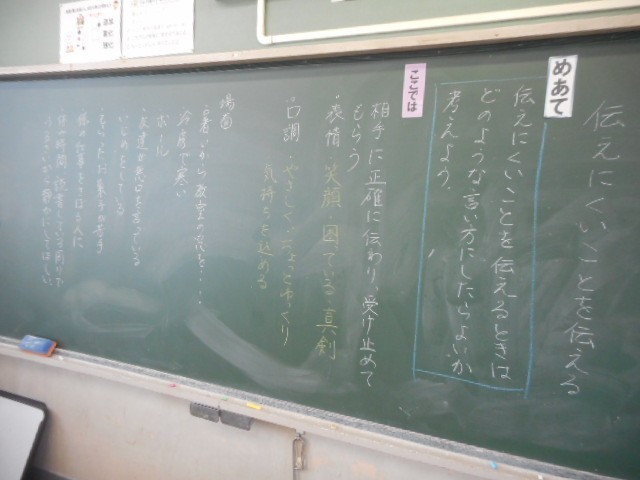 伝えにくいことを伝える
めあて
伝えにくいことを伝えるときは
どのような言い方にしたらよいか
考えよう。
ここでは
相手に正確に伝わり、受け止めて
もらう
・表情・笑顔・困っている・真剣
・口調・やさしく・ちょっとゆっくり
気持ちを込める
場面
・暑いから教室の窓を・・・・
冷房で寒い
ボール
友達が悪口を言っている
いじめをしている
もらったお菓子が苦手
係の仕事をさぼる人に